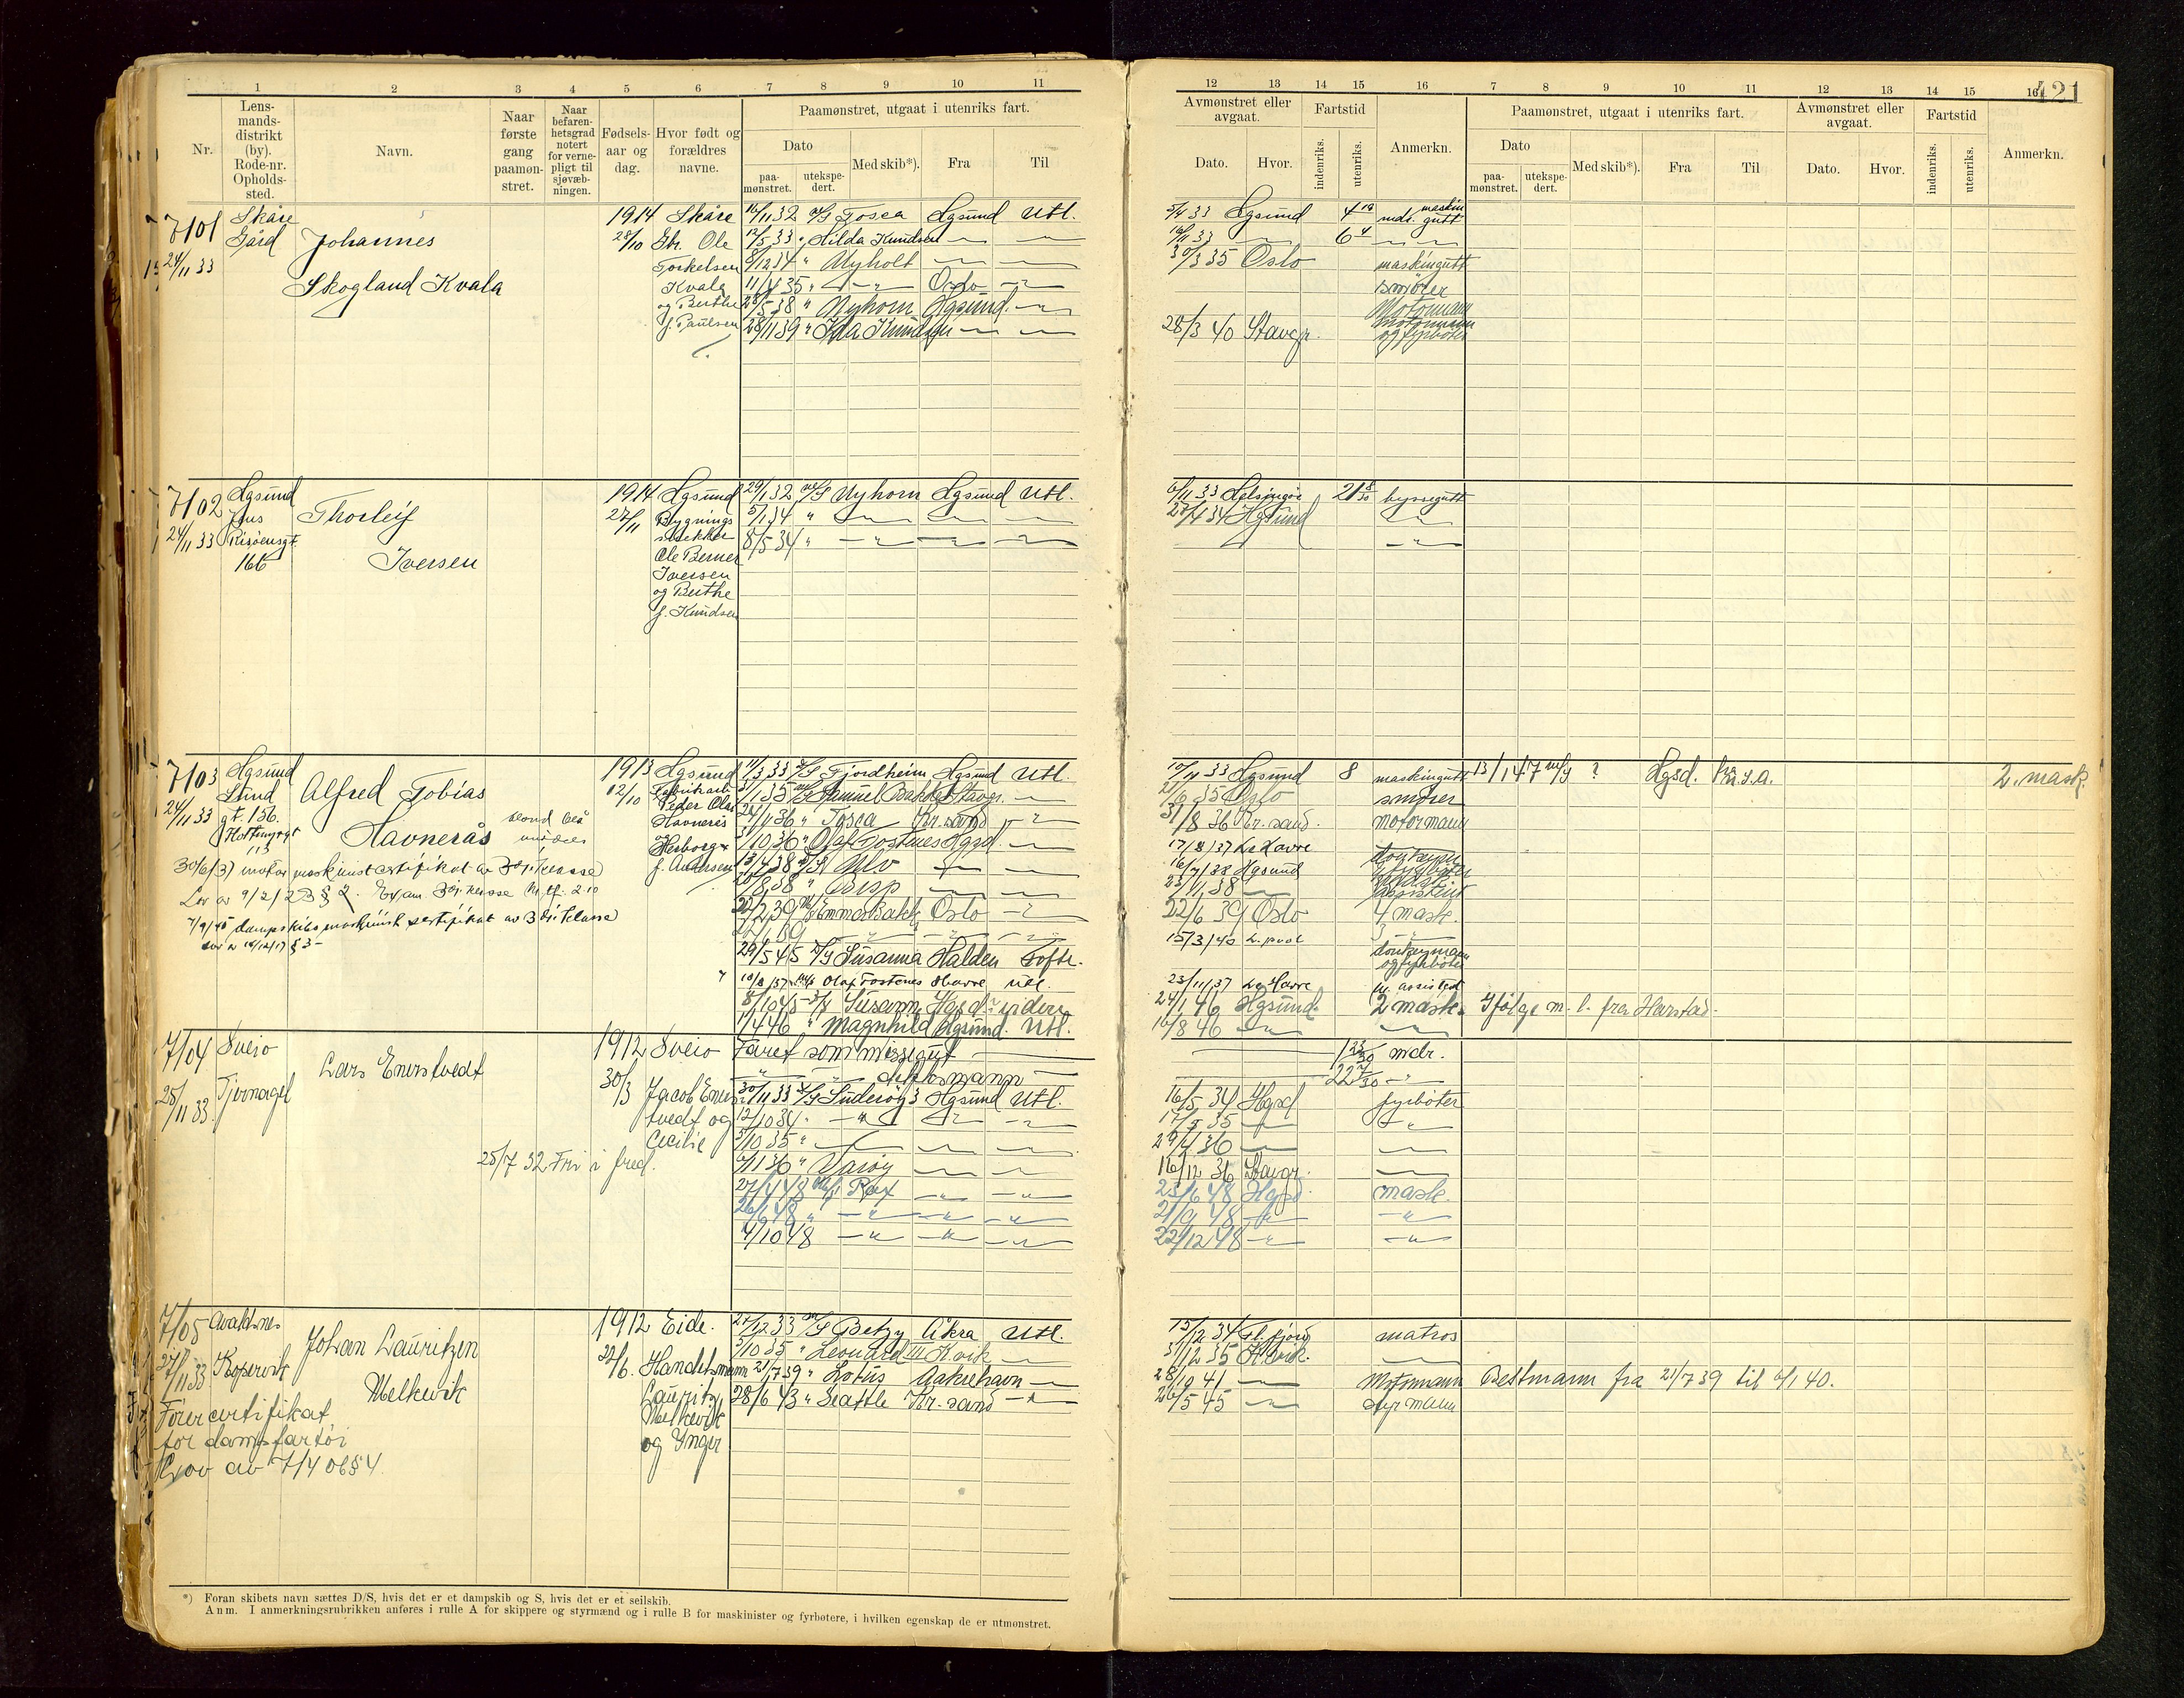 421
1 2 3 4 5 6 7 8 9 10 11
Nr. Lensmandsdistrikt (by). Rode-nr. Opholdssted. Navn. Naar første gang paamønstret. Naar befarenhetsgrad notert for vernepligt til sjøvæbningen. Fødselsaar og dag. Hvor født og forældres navne. Paamønstret, utgaat i utenriks fart.
Dato Med skib*). Fra Til
paamønstret. utekspedert.
7101 Skåre 1914 Skåre 16/11 32 M/S Tosca Hgsund Utl.
Gård Johannes 28/10 Gbr. Ole 12/5 33 " Hilda Knudsen — —
24/11 33 Torkelsen 8/12 34 " Nyholt — —
Skogland Kvala Kvala 11/4 35 " — " — Oslo — " —
og Berthe 28/5 38 " Nyhorn Hgsund. — " —
f. Paulsen 28/11 39 " Ida Knudsen — —
7102 Hgsund 1914 Hgsund 29/1 32 M/S Nyhorn Hgsund Utl.
Thorleif 27/11 Bygnings 5/1 34 " — — —
24/11 33 Risøensgt. snekker 8/5 34 " — " — — " — — " —
166 Iversen Ole Berner
Iversen
og Berthe
f. Knudsen
7103 Hgsund 1913 Hgsund 11/3 33 D/S Fjordheim Hgsund Utl.
Lund Alfred Tobias 12/10 Fabrikarb. 1/1 35 M/S Samuel Bakke Stavgr. —
24/11 33 gt. 136. Peder Olai 36 " Tosca Kr.sand — " —
Havnerås Havnerås 1/10 36 " Olaf Fostenes Hgsd. —
113 og Herborg 13/4 38 D/S Ulv — —
f. Andersen 38 " Bisp — —
30/6/31 motor maskinistcertifikat av 3dje klasse
Lov av 9/2/23 § 2. Exam 3dje klasse 2.10 2/2 39 M/S Emma Bakke Oslo — " —
7/9/45 Dampskibsmaskinist sertifikat av 3dje klasse
Lov av 10/12/17 § 3 —
29/5 45 D/S Susanna Halden Kofte.
10/8/37 M/S Olaf Fostenes Havre Utl.
8/10 45 — D/S Susann Hgsd videre
1/4 46 " Magnhild Hgsund. Utl.
7104 Sveio 1912 Sveio Faret som messegut —
Lars Enerstvedt 30/3 Jacob Ener " " dekksmann —
25/11 33. Tjernagel stvedt og 30/11 33 D/S Suderöy 3 Hgsund Utl.
Cecilie 12/10 34 " — " — — " — — " —
3/10 35 " — — —
25/7 32 Fri i fred. 6/11 36 " Varöy — —
27/4 48 M/S Rex — " — — " —
26/6 48 " — " — — " — — " —
4/10 48 — " — — " — — " —
7105 Avaldsnes 1912 Eide. 27/12 33 M/S Betzy Åkra Utl.
Johan Lauritzen 22/6. Handelsmann 3/10 35 " Leonard III K.vik —
27/11 33 Kopervik Lauritz 21/7 39 " Lotus Aakrehavn —
Melkevik Melkevik 28/6 43 " Seattle Kr.sand — " —
Førercertifikat og Ynger
for dampfartøi
Lov av 7/4 06 § 4.
*) Foran skibets navn sættes D/S, hvis det er et dampskib og S, hvis det er et seilskib.
Anm. I anmerkningsrubrikken anføres i rulle A for skippere og styrmænd og i rulle B for maskinister og fyrbøtere, i hvilken egenskap de er utmønstret.
12 13 14 15 16 7 8 9 10 11 12 13 14 15 16
Avmønstret eller avgaat. Fartstid Anmerkn. Paamønstret, utgaat i utenriks fart. Avmønstret eller avgaat. Fartstid Anmerkn.
Dato. Hvor. indenriks. utenriks. Dato Med skib*). Fra Til Dato. Hvor. indenriks. utenriks.
paamønstret. utekspedert.
5/4 33 Hgsund 4 mdr. maskingutt
16/11 33 — 6 4 — " — " —
30/3 35 Oslo maskingutt
smører
Motormann
28/3 40 Stavgr. motormann og fyrbøter
6/11 33 Helsingör 21 8/30 byssegutt
27/4 34 Hgsund — " —
— " —
10/11 33 Hgsund 8 maskingutt 13/1 47 M/S ? Hgsd. U.S.A. 2. mask.
21/6 35 Oslo smører
31/8 36 Kr.sand. motormann
17/8/37 Le Havre
16/7/38 Hgsund
23/11 38 — assistent
22/6 39 Oslo 4 mask.
15/3/40 L.pool 3 — " —
donkeymann og fyrbøter
23/11/37 Le Havre assistent
24/1 46 Hgsund. 2 mask. Ifølge m. l. fra Harstad.
16/8 46 — " — —
1 23/30 mdr.
22 7/30 — " —
16/5 34 Hgsd fyrbøter
17/5 35 — — " —
29/4 36 — —
16/12 36 Stavgr. —
23/6 48 Hgsd. mask.
21/9 48 — " — — " —
22/12 48 — " — — " —
15/12 34 Fl.fjord matros
31/12 35 K.vik. —
28/10 41 — Motormann Bestmann fra 21/7 39 til 6/1 40.
26/5 45 — " — styrmann